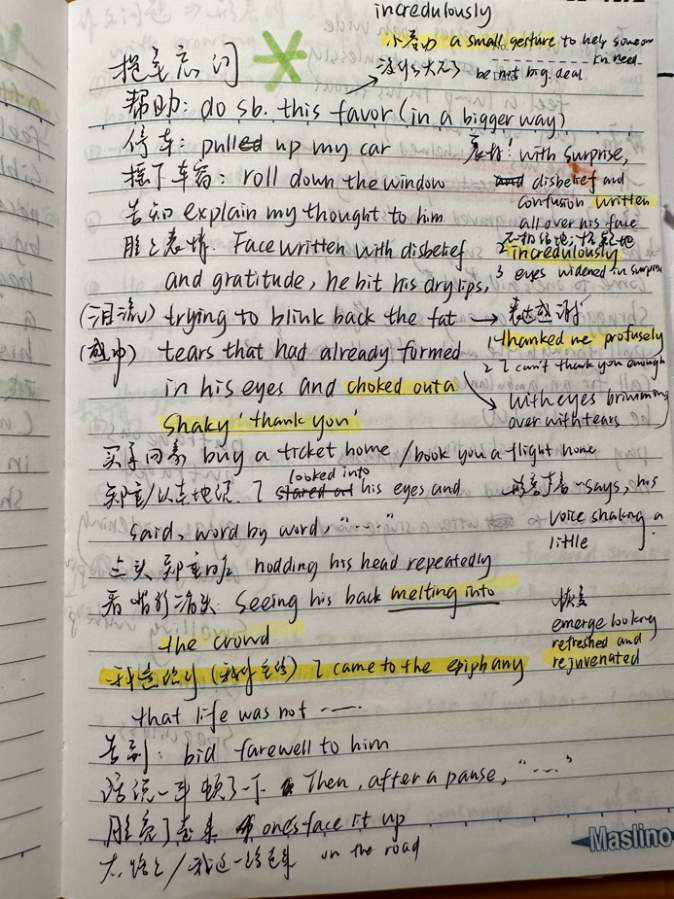 incredulously
a small gesture to help someone in need.
be not big deal
帮助: do sb. this favor (in a bigger way)
停车: pulled up my car
表情: with surprise,
摇下车窗: roll down the window
disbelief and
confusion written
告知 explain my thought to him
all over his face
脸上表情. Face written with disbelief
2 incredulously
and gratitude, he bit his dry lips,
3 eyes widened in surprise
(泪流) trying to blink back the fat → 表达感谢
(感动) tears that had already formed
1 thanked me profusely
2 I can't thank you enough
in his eyes and choked out a
with eyes brimming
shaky 'thank you'
over with tears
买票回家 buy a ticket home / book you a flight home
郑重/认真地说. I stared at looked into his eyes and
says, his
said, word by word, "……"
voice shaking a
little
点头 郑重的 nodding his head repeatedly
seeing his back melting into
the crowd
恢复
emerge looking
refreshed and
rejuvenated
我意识到 I came to the epiphany
that life was not ……
告别: bid farewell to him
话说一半 顿了一下 Then, after a pause, "……"
脸亮了起来 one's face lit up
on the road
Maslino